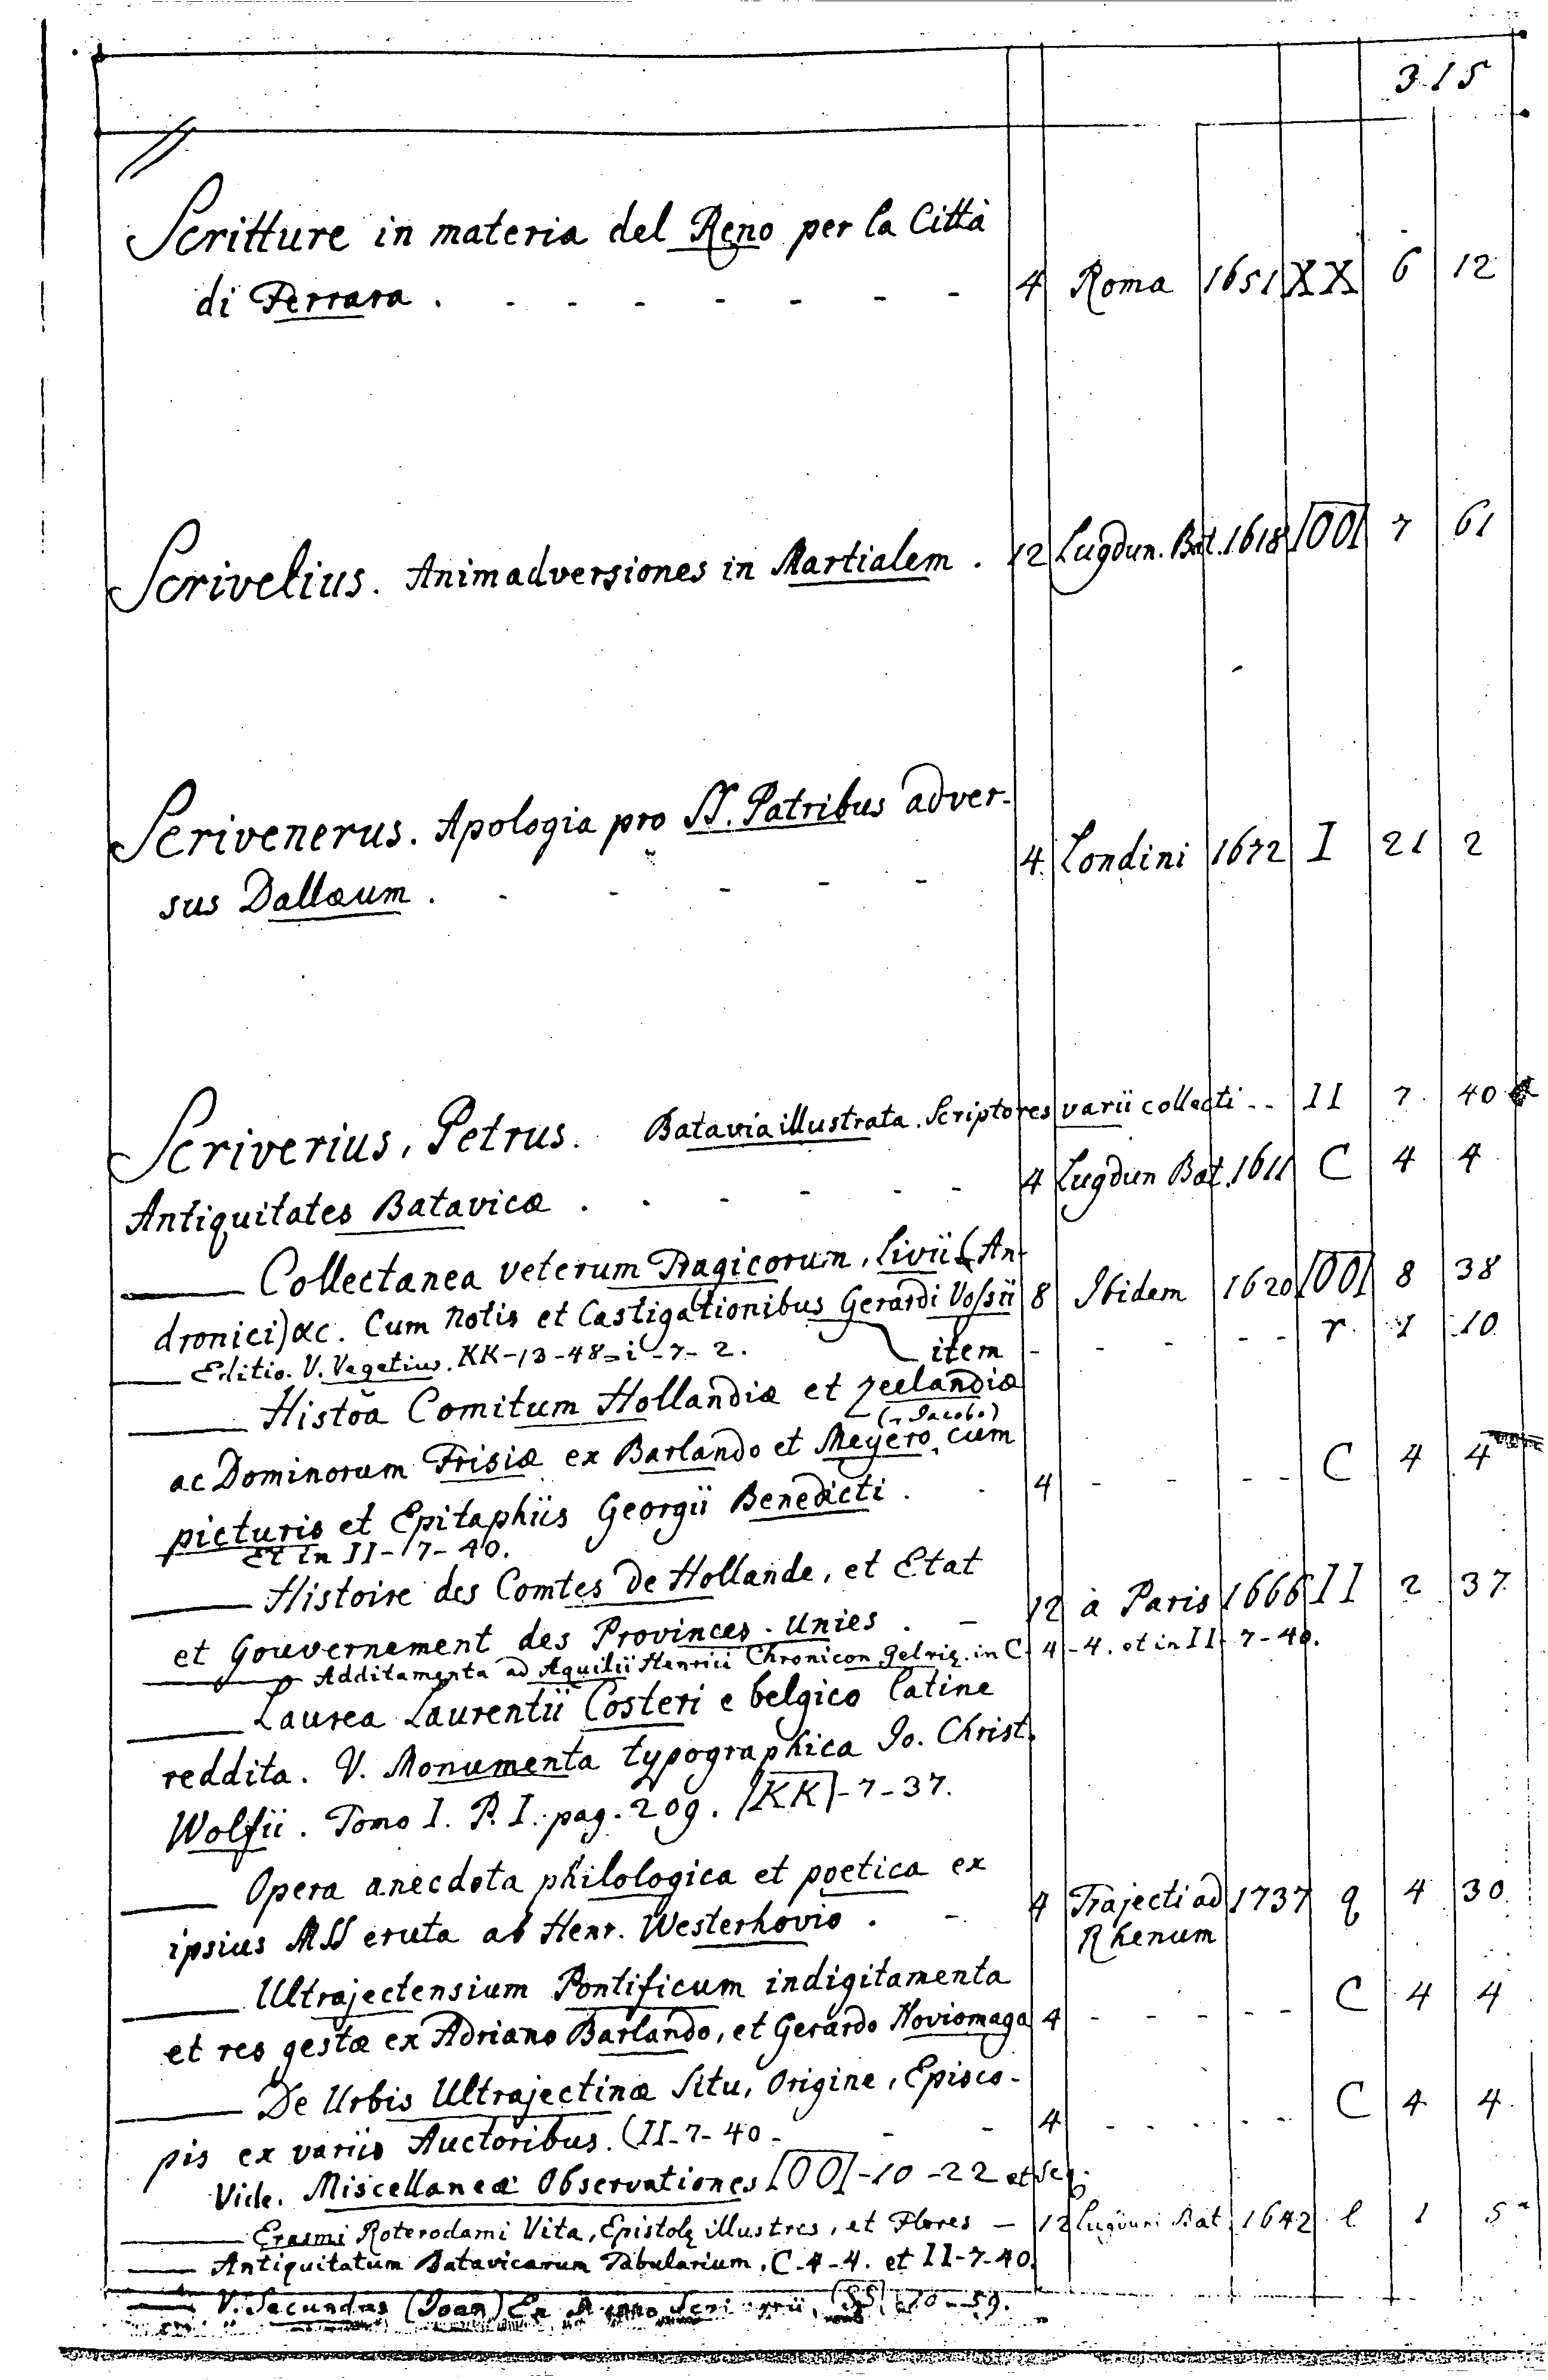 315
Scritture in materia del Reno per la Città
di Ferrara . - - - - - - - 4 Roma 1651 XX 6 12
Scrivelius. Animadversiones in Martialem . 12 Lugdun. Bat. 1618 |OO| 7 61
Scrivenerus. Apologia pro SS. Patribus adver-
sus Dallæum . - - - - - 4. Londini 1672 I 21 2
Scriverius, Petrus. Batavia illustrata. Scriptores varii collecti - - II 7. 40
Antiquitates Batavicæ . . - - - - 4 Lugdun Bat. 1611 C 4 4
—— Collectanea veterum Tragicorum, Livii (An-
dronici) &c. Cum notis et Castigationibus Gerardi Vossii 8 Ibidem 1620 |OO| 8 38
item - - - - - r. 1 10
—— Editio. V. Vegetius. KK-13-48=i-7-2.
—— Histõa Comitum Hollandiæ et Zeelandiæ
(Jacobo)
ac Dominorum Frisiæ ex Barlando et Meyero cum
picturis et Epitaphiis Georgii Benedicti . - 4 - - - - C 4 4
Et in II-7-40.
—— Histoire des Comtes de Hollande, et Etat
et Gouvernement des Provinces-Unies . - 12 à Paris 1666 II 2 37
—— Additamenta ad Aquilii Henrici Chronicon Gelriæ. in C-4-4. et in II-7-40.
—— Laurea Laurentii Costeri e belgico latine
reddita. V. Monumenta typographica Jo. Christ.
Wolfii. Tomo I. P. I. pag. 209. |KK|-7-37.
—— Opera anecdota philologica et poetica ex
ipsius MSS eruta ab Henr. Westerhovio . - 4 Trajecti ad 1737 q 4 30
Rhenum
—— Ultrajectensium Pontificum indigitamenta
et res gestæ ex Adriano Barlando, et Gerardo Noviomago 4 - - - - - C 4 4
—— De Urbis Ultrajectinæ Situ, Origine, Episco-
pis ex variis Auctoribus. (II-7-40 - - - 4 - - - - - C 4 4
Vide. Miscellaneæ Observationes |OO|-10-22 et seq.
—— Erasmi Roterodami Vita, Epistolę illustres, et Flores — 12 Lugduni Bat. 1642 l 1 5
—— Antiquitatum Batavicarum Tabularium. C-4-4. et II-7-40.
—— V. Secundus (Joan) Ex |SS| 10-59.